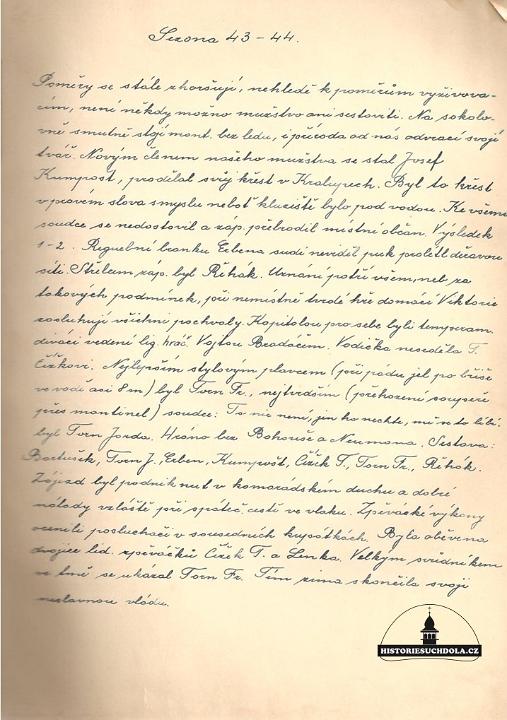 Sezona 43 - 44.
Poměry se stále zhoršují, nehledě k poměrům vyživova-
cím, není někdy možno mužstvo ani sestaviti. Na sokolo-
vně smutně stojí mont. bez ledu, i příroda od nás odvrací svoji
tvář. Novým členem našeho mužstva se stal Josef
Kumpost, prodělal svůj křest v Kralupech. Byl to křest
v pravém slova smyslu neboť kluziště bylo pod vodou. Ke všemu
soudce se nedostavil a záp. přebrodil místní občan. Výsledek
1-2. Regulelní branku Erbena sudí neviděl puk proletěl děravou
sítí. Střelcem záp. byl Řehák. Uznání patří všem, neb za
takových podmínek, při nemístně tvrdé hře domácí Viktorie
zasluhují všichni pochvaly. Kapitolou pro sebe byli temperam.
diváci vedení lig. hráč. Vojtou Bradáčem. Vodička nesedělo F.
Čížkovi. Nejlepším stylovým plavcem (při pádu jel po břiše
ve vodě asi 8 m) byl Tvrn Fr., nejtvrdším (přehození soupeře
přes mantinel) soudce: To nic není, jen ho nechte, mě se to líbí,
byl Tvrn Jarda. Hráno bez Bohouše a Neumana. Sestava:
Bartušek, Tvrn J., Erben, Kumpošt, Čížek T., Tvrn Fr., Řehák.
Zájezd byl podniknut v kamarádském duchu a dobré
nálady zvláště při zpáteč. cestě ve vlaku. Zpěvácké výkony
ocenili posluchači v sousedních kupátkách. Byla oběvena
dvojice lid. zpěváčků Čížek T. a Lenka. Velkým svůdníkem
ve tmě se ukázal Tvrn Fr. Tím zima skončila svoji
neslavnou vládu.
HISTORIESUCHDOLA.CZ